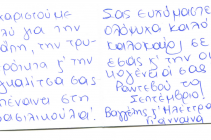 χαριστούμε
λύ για την
άπη, την τρυ-
φράδα κ' την
γκαλίτσα σας
πέναντι στη
Βασιλικούλα!
Σας ευχόμαστε
ολόψυχα καλό
καλοκαίρι σε
εσάς κ' την οι
κογένειά σας
Ραντεβού το
Σεπτέμβριο!
Βαγγέλης κ' Ηλέκτρα
Γιάννενα